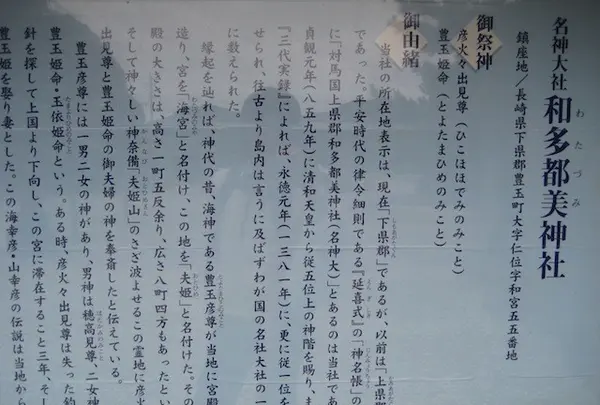 名神大社 和多都美神社
わたづみ
鎮座地／長崎県下県郡豊玉町大字仁位字和宮五五番地
御祭神
彦火々出見尊（ひこほほでみのみこと）
豊玉姫命（とよたまひめのみこと）
御由緒
当社の所在地表示は、現在「下県郡」であるが、以前は「上県郡
であった。平安時代の律令細則である『延喜式』の「神名帳」の
に「対馬国上県郡和多都美神社（名神大）」とあるのは当社であ
貞観元年（八五九年）に清和天皇から従五位上の神階を賜り、ま
『三代実録』によれば、永徳元年（一三八一年）に、更に従一位を
せられ、往古より島内は言うに及ばずわが国の名社大社の一
に数えられた。
縁起を辿れば、神代の昔、海神である豊玉彦尊が当地に宮殿
造り、宮を「海宮」と名付け、この地を「夫姫」と名付けた。その
殿の大きさは、高さ一町五反余り、広さ八町四方もあったとい
そして神々しい神奈備「夫姫山」のさざ波よせるこの霊地に彦火
出見尊と豊玉姫命の御夫婦の神を奉斎したと伝えている。
豊玉彦尊には一男二女の神があり、男神は穂高見尊、二女神
豊玉姫命・玉依姫命という。ある時、彦火々出見尊は失った釣
針を探して上国より下向し、この宮に滞在すること三年、そし
豊玉姫を娶り妻とした。この海幸彦・山幸彦の伝説は当地から